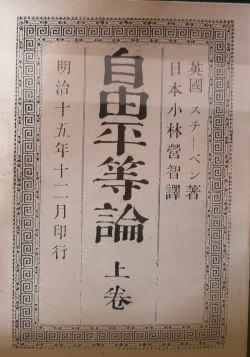 英國 スチーベン著
日本小林營智譯
自由平等論 上卷
明治十五年十二月印行